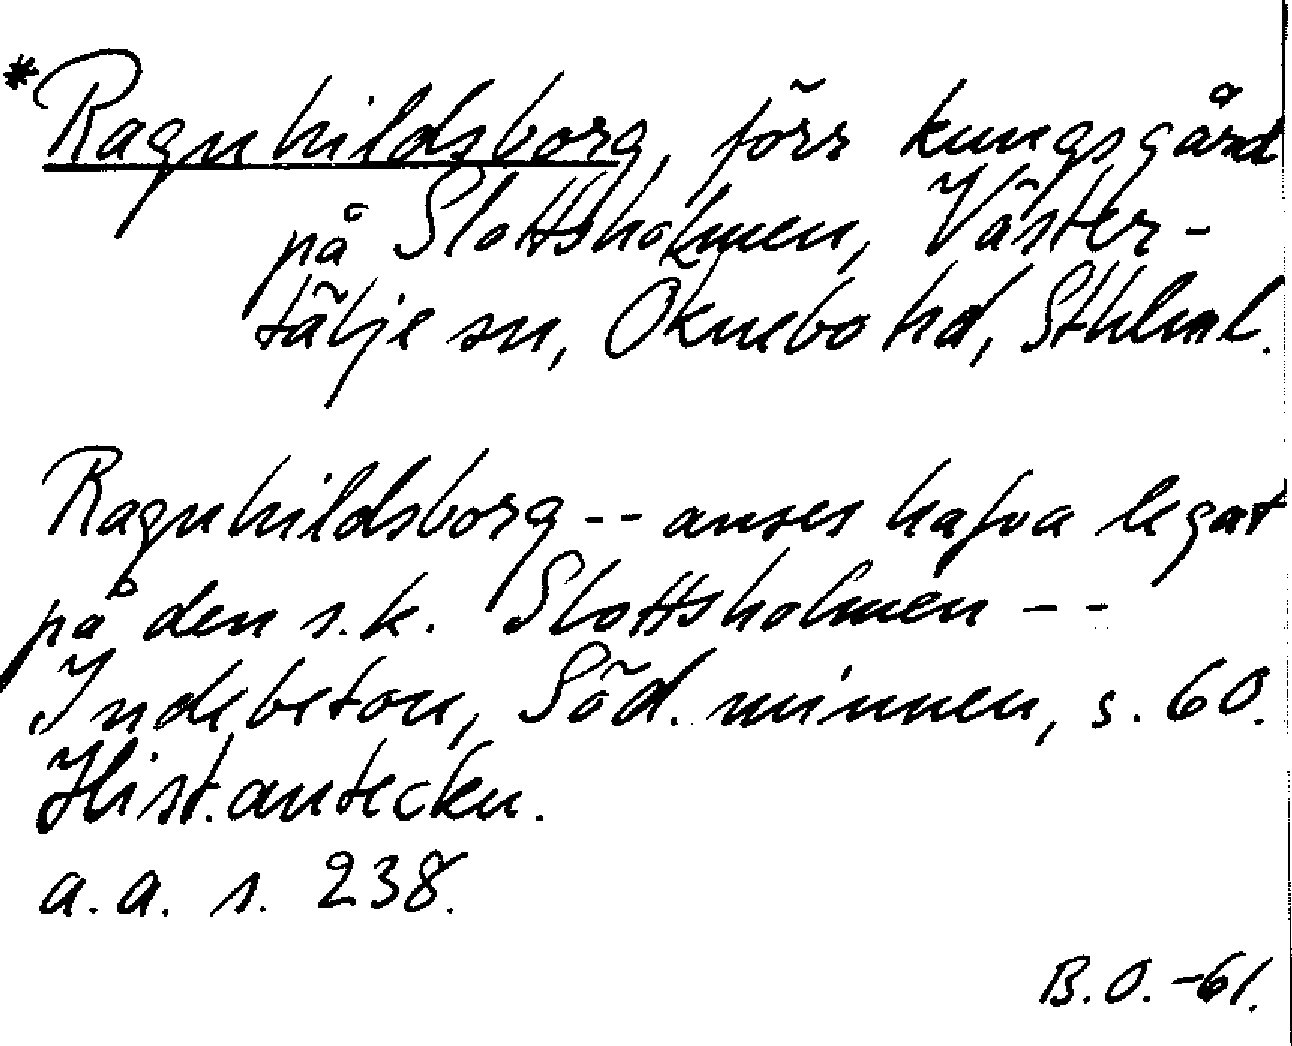 *Ragnhildsborg, förr kungsgård
på Slottsholmen, Väster-
tälje sn, Öknebo hd, Sthlml.
Ragnhildsborg -- anses hafva legat
på den s.k. Slottsholmen --
Indebetou, Söd. minnen, s. 60.
Hist. anteckn.
a.a. s. 238.
B.O. -61.